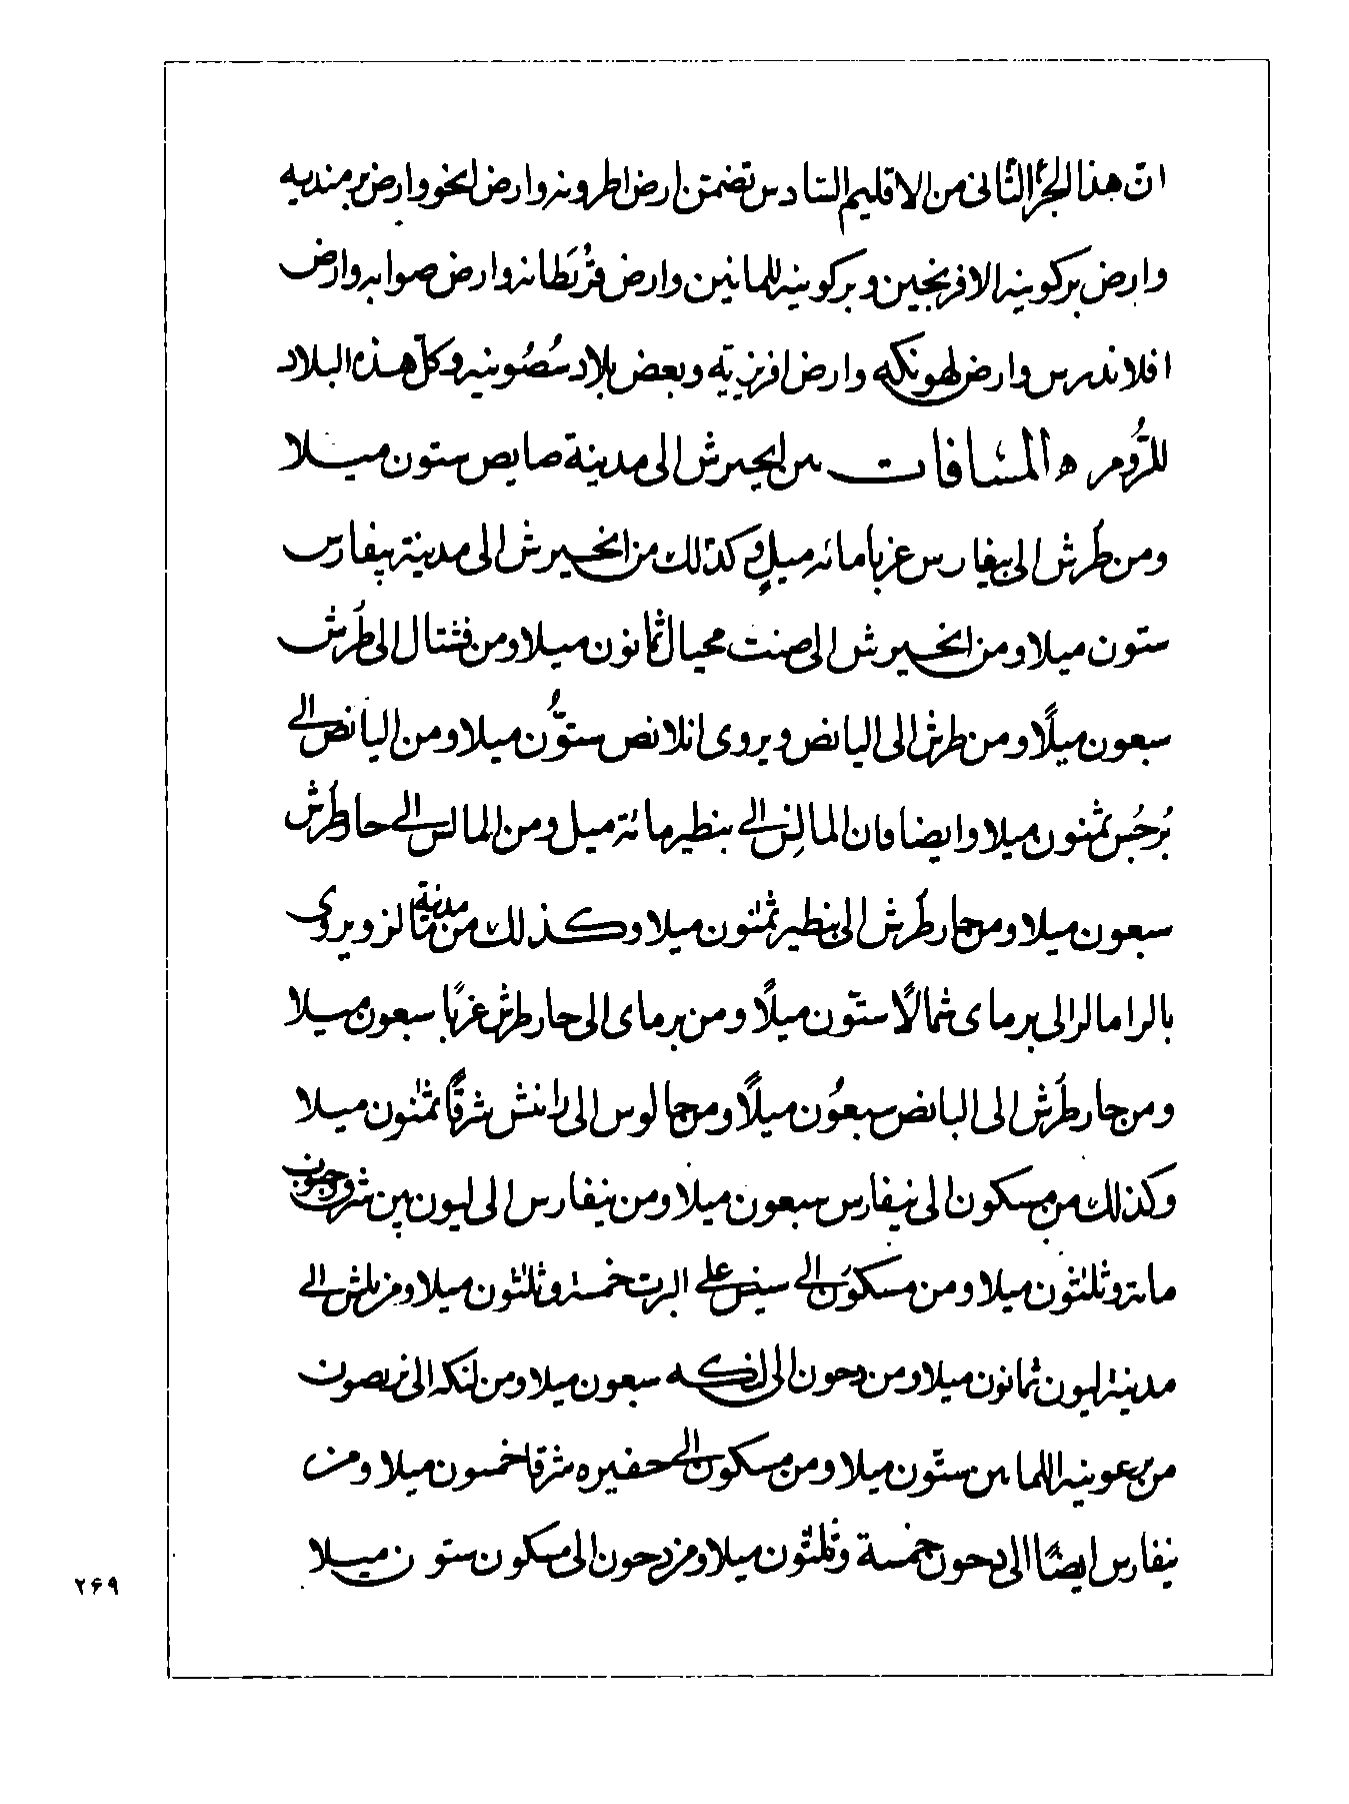 انّ هذا الجزء الثّانى من الاقليم السّادس تضمّن ارض اطرونه وارض انخو وارض برمنديه
وارض بركونيه الافرنجيين و بركونيه للمانيين وارض قرُنطانه وارض صوابه وارض
افلاندرس وارض لهونكه وارض افرنزيّه و بعض بلاد سُصُونيه وكلّ هذه البلاد
للرّوم ه المسافات من انجيرش الى مدينة صايص ستون ميلا
ومن طُرش الى بيفارس غربا مائه ميلٍ وكذلك من انجيرش الى مدينة بيفارس
ستون ميلا ومن انجيرش الى صنت محيال ثمانون ميلا ومن فشتال الى طُرش
سبعون ميلًا ومن طرش الى اليانص ويروى انلانص ستّون ميلا ومن اليانص الى
بُرجُس ثمنون ميلا وايضا فان المالِس الى بنطير مائة ميل ومن المالس الى جارطُرش
سبعون ميلا ومن جارطُرش الى بنطير ثمنون ميلا وكذلك من مدينة مالز ويروى
بالرا مالر الى برماى شمالًا ستّون ميلًا ومن برماى الى جارطرش غربًا سبعون ميلا
ومن جارطُرش الى اليانص سبعُون ميلًا ومن جالوس الى رانش شرقًا ثمنون ميلا
وكذلك من مسكون الى نيفارس سبعون ميلا ومن نيفارس الى ليون بين شرق وجنوب
مائة وثلثون ميلا ومن مسكون الى سيص على البرت خمسة وثلثون ميلا ومن بلش الى
مدينة ليون ثمانون ميلا ومن دحون الى لنكه سبعون ميلا ومن لنكه الى بزصون
من برغونيه اللمانين ستّون ميلا ومن مسكون الى جنبره شرقا خمسون ميلا ومن
نيفارس ايضًا الى دحون خمسة وثلثون ميلا ومن دحون الى مسكون ستون ميلا
۲۶۹